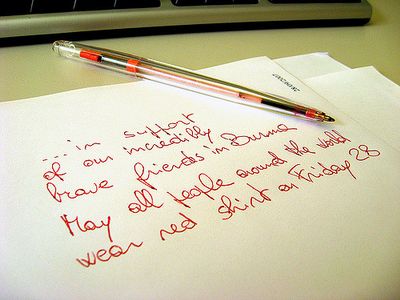 28/09/2007
...in support
of our incredibly
brave friends in Burma
May all people around the world
wear red shirt on Friday 28